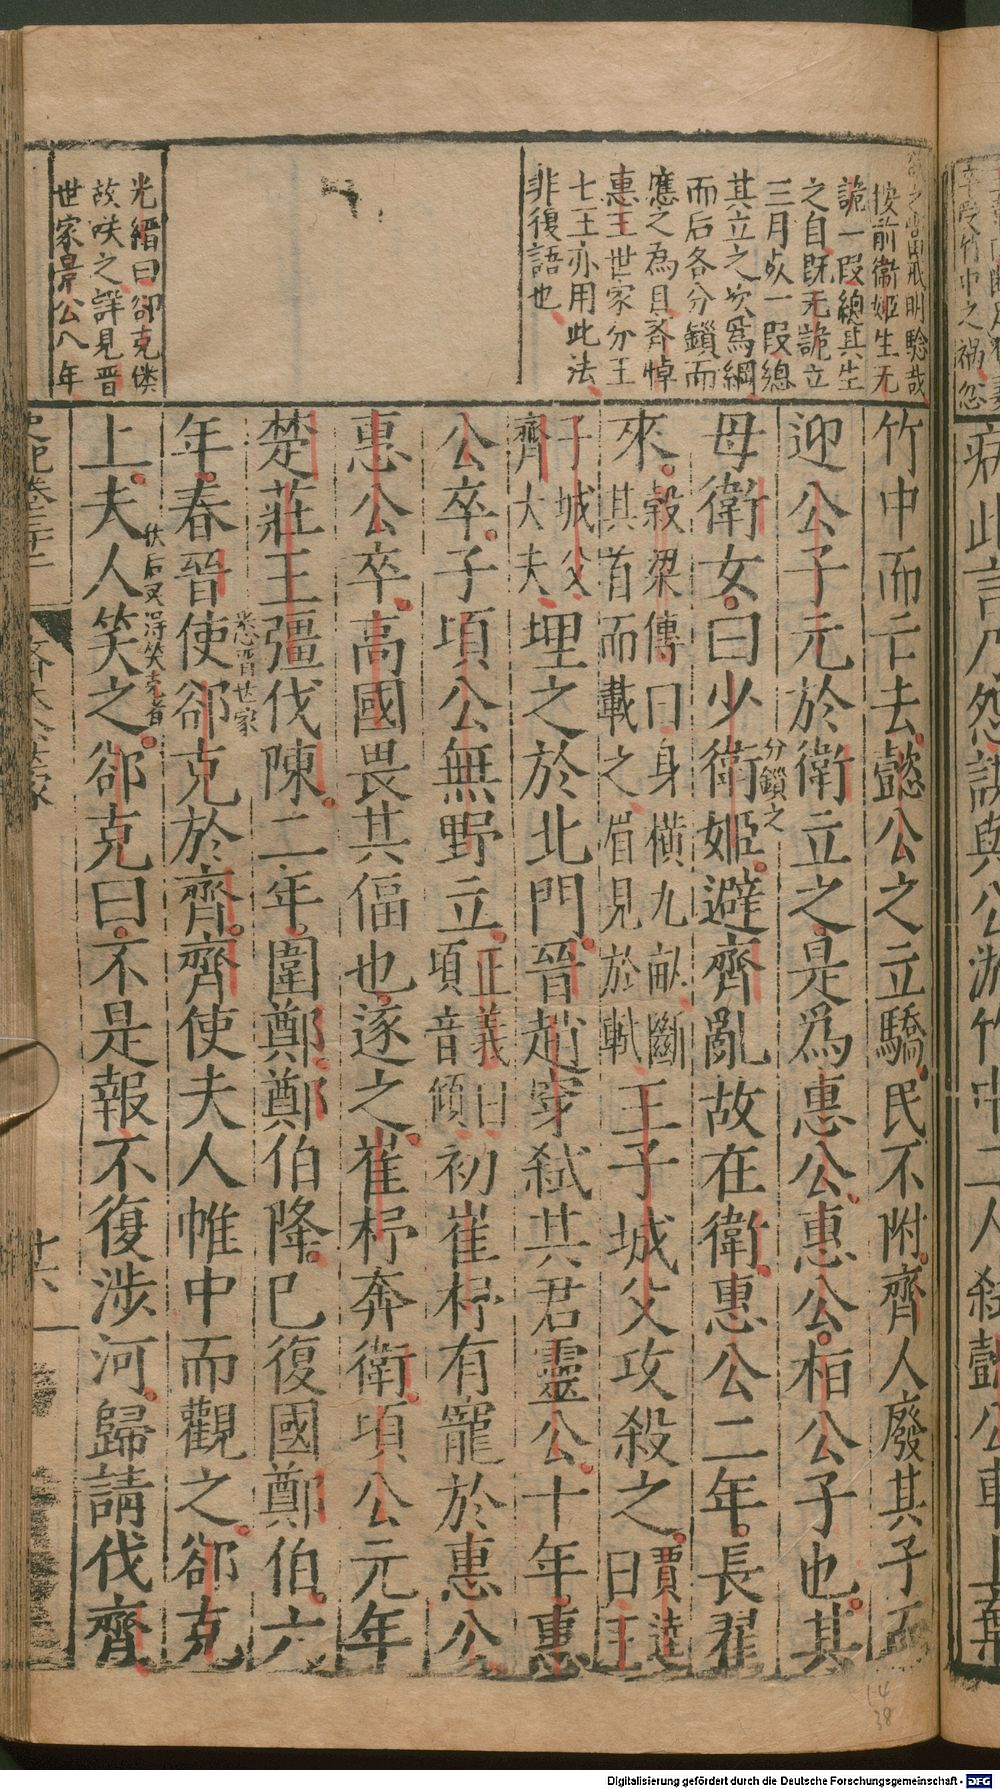 按前衞姬生无
詭一叚總其生
之自旣无詭立
三月
一叚總
其立之次爲綱
而后各分鎖而
應之為且齊悼
惠王世家分王
七王亦用此法
非復語也
光縉曰郤克僂
故咲之詳見晉
世家景公八年
竹中而亡去懿公之立驕民不附齊人廢其子而
迎公子元於衛立之是爲惠公惠公桓公子也其
母衛女曰少衛姬避齊亂故在衛惠公二年長翟
分鎖之
來穀梁傳曰身橫九畝斷
其首而載之眉見於軾
王子城父攻殺之賈逵
曰王
子城父
齊大夫
埋之於北門晉趙穿弑其君靈公十年惠
公卒子頃公無野立正義曰
頃音傾
初崔杼有寵於惠公
惠公卒高國畏其偪也逐之崔杼奔衛頃公元年
楚莊王彊伐陳二年圍鄭鄭伯降已復國鄭伯六
年春晉使郤克於齊齊使夫人帷中而觀之郤克
悉晉世家
上夫人笑之郤克曰不是報不復涉河歸請伐齊
伏后又
笑
者
史記卷三十二
齊太公世家
十六
病此言乃怨謀與公游竹中二人殺懿公車上棄
卒受竹中之禍
14
38
Digitalisierung gefördert durch die Deutsche Forschungsgemeinschaft - DFG